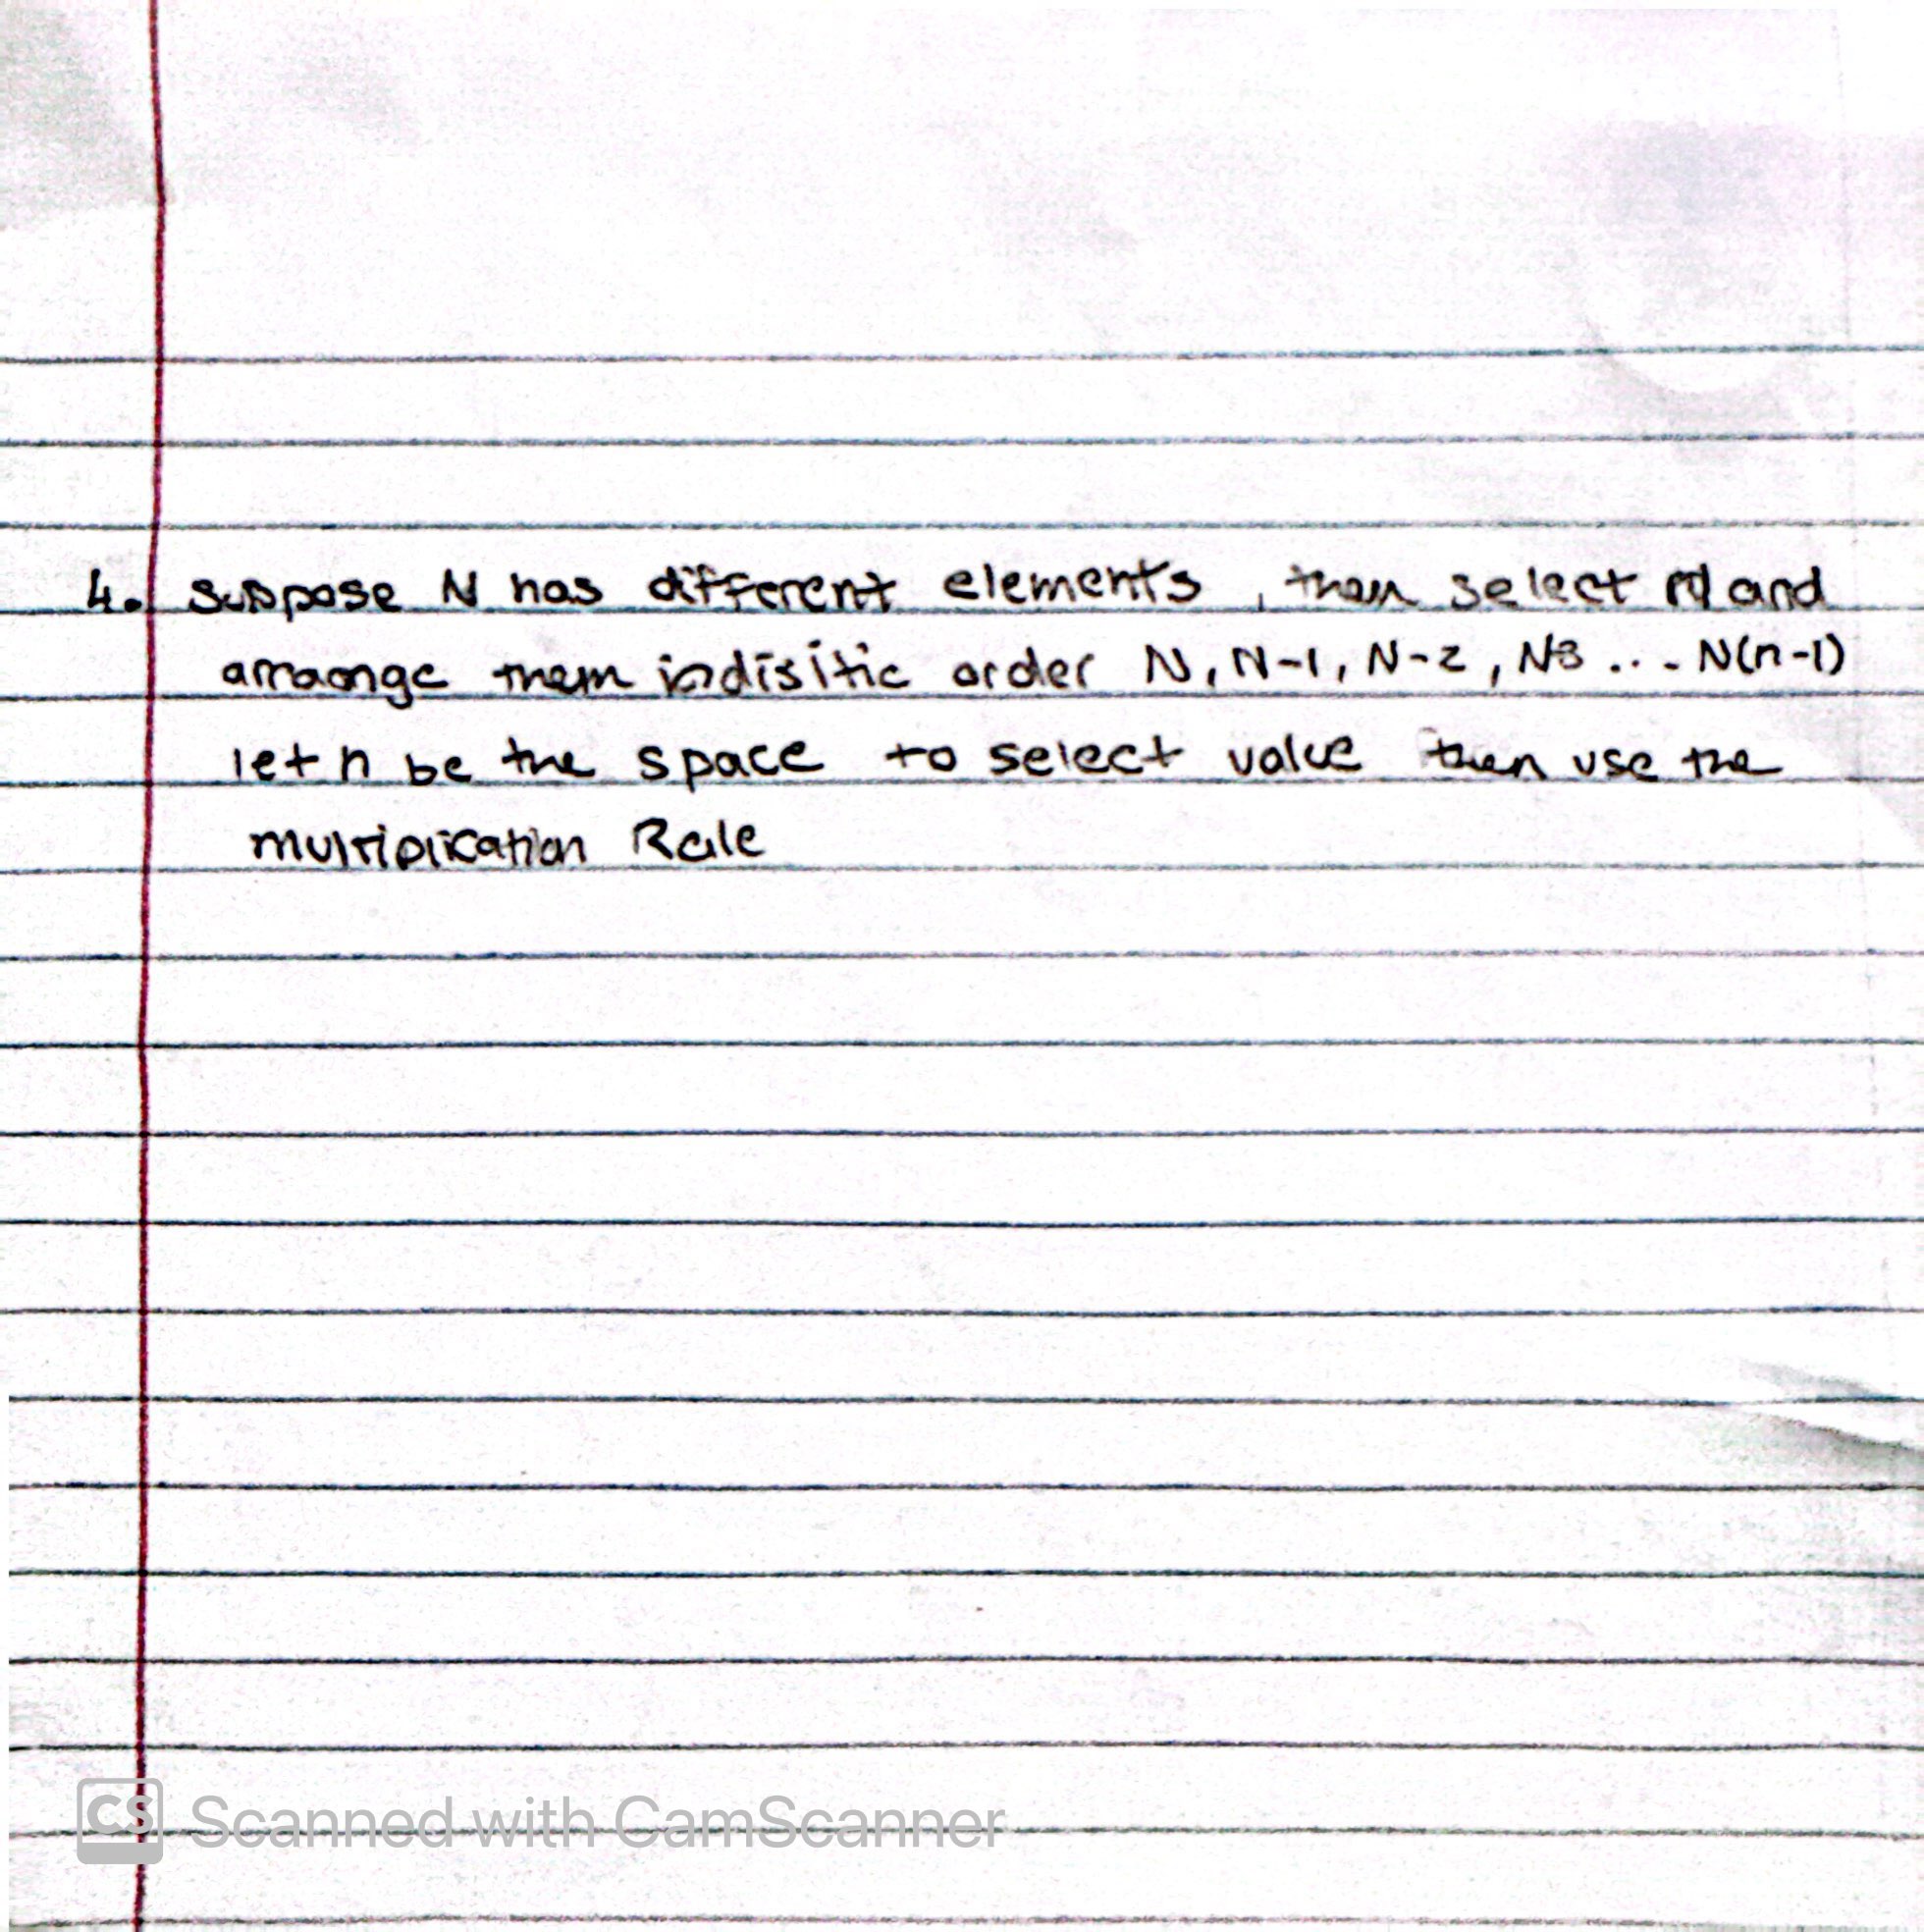 4. Suppose N has different elements, then select and
arraonge them indisitic order N, N-1, N-2, N-3 ... N(n-1)
let n be the space to select value then use the
multiplication Rule
CS Scanned with CamScanner